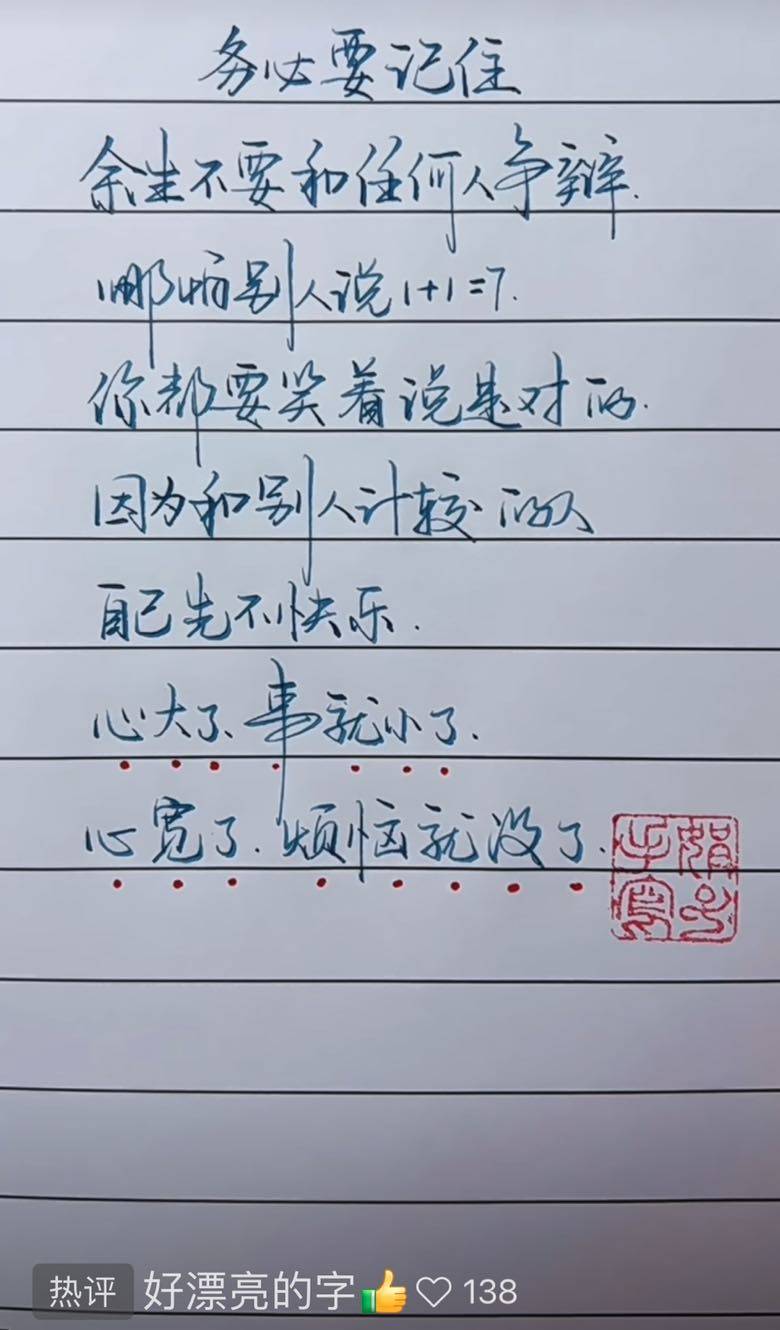 务必要记住
余生不要和任何人争辩.
哪怕别人说1+1=7.
你都要笑着说是对的.
因为和别人计较的人
自己先不快乐.
心大了、事就小了.
心宽了.烦恼就没了.
热评 好漂亮的字👍♡ 138